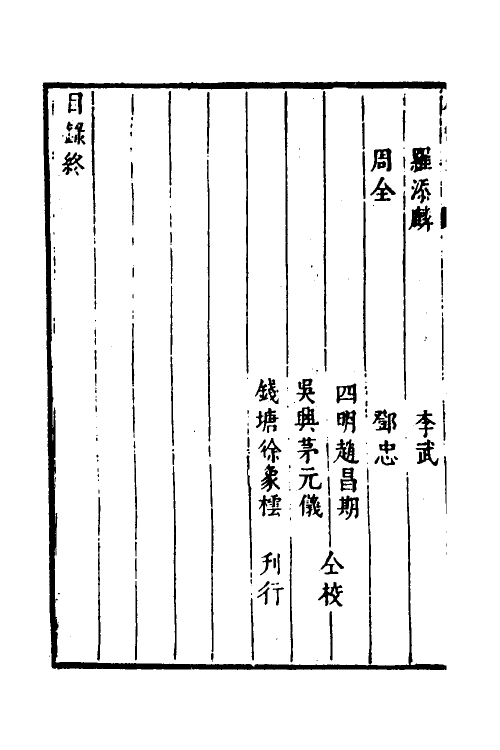 羅添麟 李武
周全 鄧忠
四明趙昌期
吳興茅元儀 仝校
錢塘徐象橒 刊行
目錄終